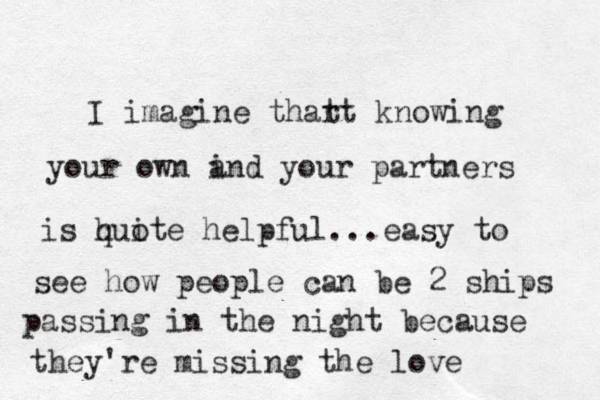 I imagine thatt knowing
your own and your partners
is quite helpful...easy to
see how people can be 2 ships
passing in the night because
they're missing the love